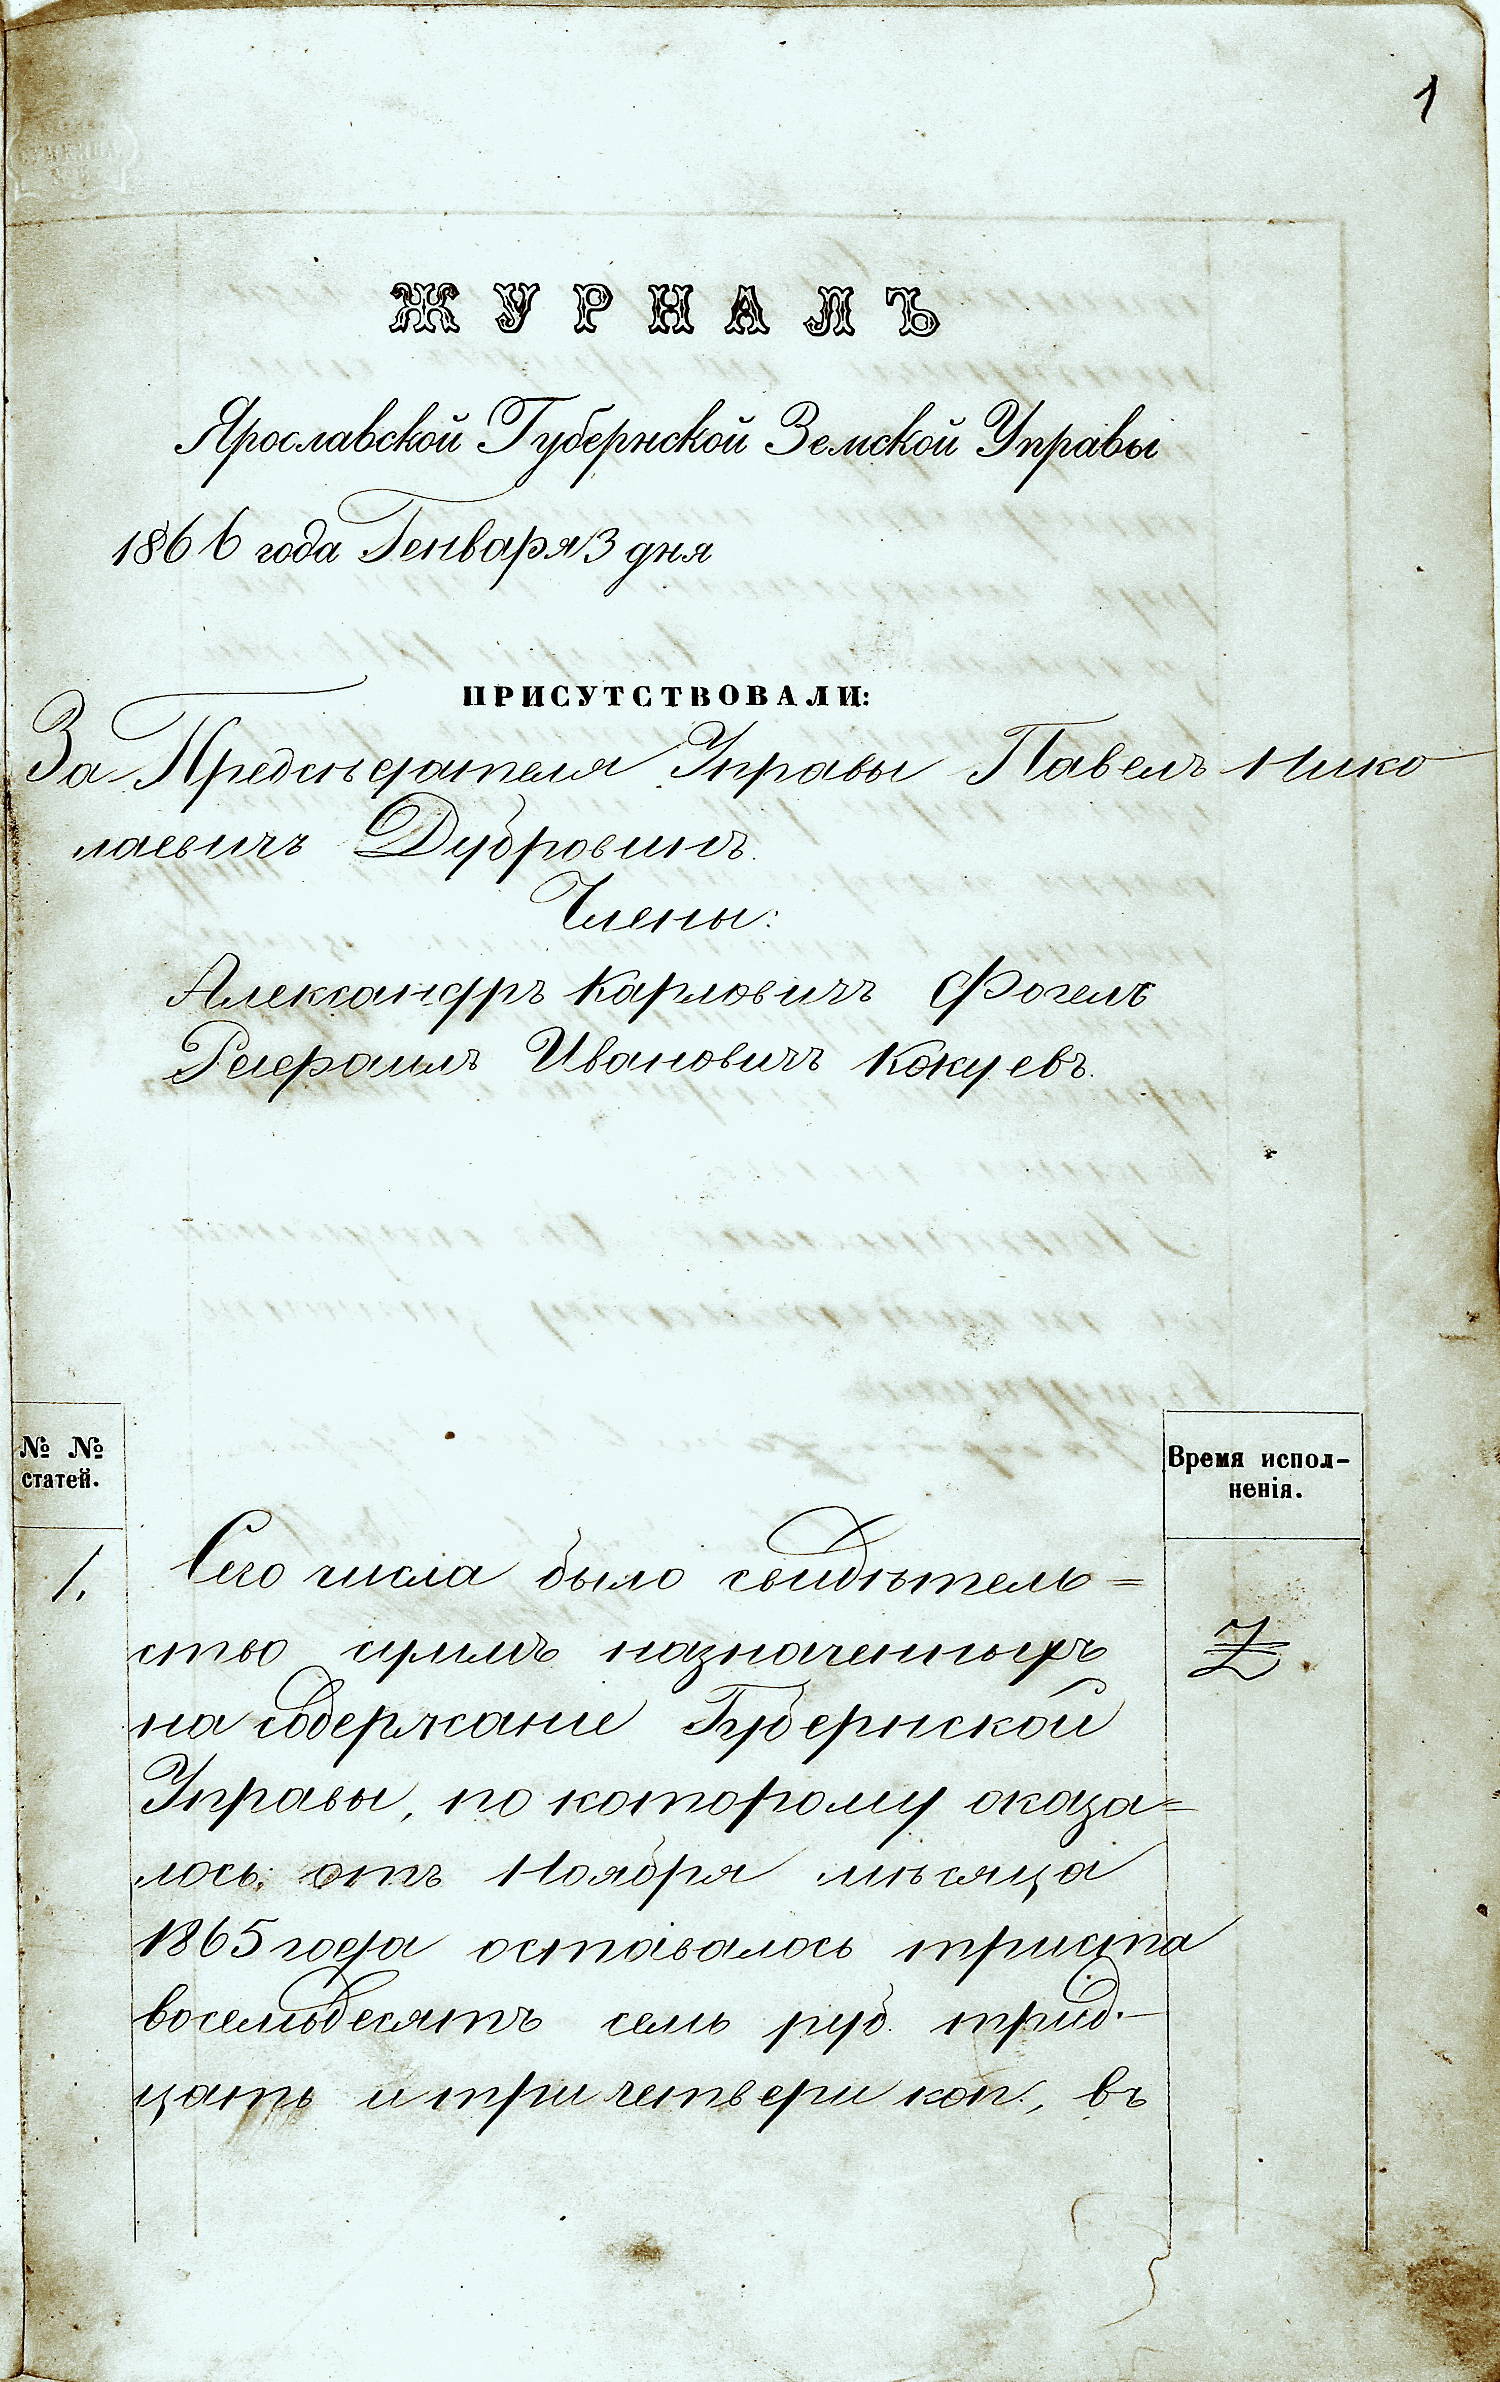 1
ЖУРНАЛЪ
Ярославской Губернской Земской Управы
1866 года Генваря 3 дня
ПРИСУТСТВОВАЛИ:
За Предсѣдателя Управы Павелъ Нико
лаевичъ Дубровинъ.
Члены:
Александръ Карловичъ Фогель
Рафаилъ Ивановичъ Кокуевъ.
№ № статей.
Время испол-
ненія.
1. Сего числа было свидѣтель=
ство суммъ назначенныхъ
на содержаніе Губернской
Управы, по которому оказа=
лось: отъ Ноября мѣсяца
1865 года оставалось триста
восемьдесятъ семь руб. трид-
цать и три четверти коп., въ